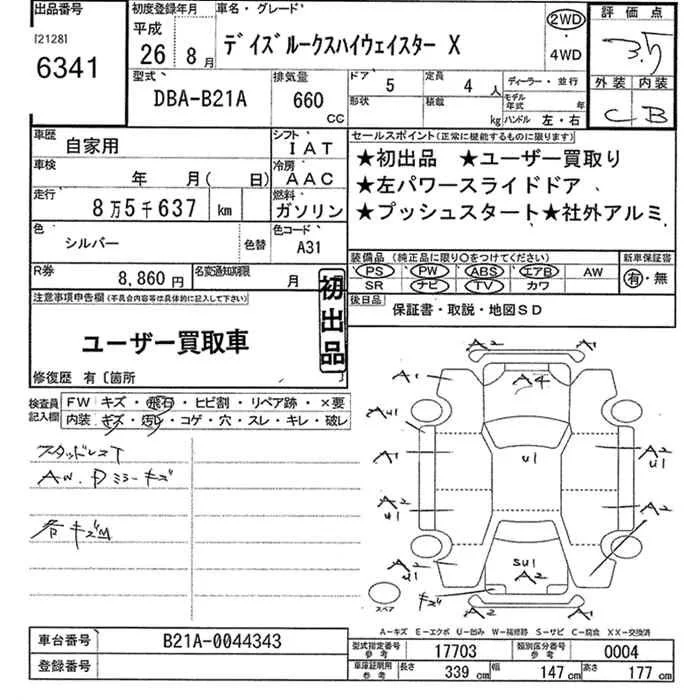 出品番号
[2128]
6341
初度登録年月
平成
26年 8月
車名・グレード
デイズルークスハイウェイスター X
2WD
・
4WD
評価点
3.5
外装 内装
C B
型式
DBA-B21A
排気量
660
CC
ドア 5
定員 4 人
形状
積載 kg
ディーラー・並行
モデル年式 年
ハンドル 左・右
車歴 自家用
シフト IAT
車検 年 月( 日)
冷房 AAC
走行 8万5千637 km
燃料 ガソリン
色 シルバー
色替
色コード A31
R券 8,860円
名変通知期限 月
セールスポイント(正常に機能するものに限ります)
★初出品 ★ユーザー買取り
★左パワースライドドア
★プッシュスタート★社外アルミ
装備品(純正品に限り○をつけてください)
PS PW ABS エアB AW
SR ナビ TV カワ
新車保証書
有・無
後日品
保証書・取説・地図SD
注意事項申告欄(不具合内容等は具体的に記入して下さい)
初出品
ユーザー買取車
修復歴 有〔箇所 〕
検査員記入欄
FW キズ・飛石・ヒビ割・リペア跡・×要
内装 キズ・汚れ・コゲ・穴・スレ・キレ・破レ
スタッドレスT
AW.Dミラーキズ
各キズM
A2 A1
A1 A4
AU1
A1 U1 A2
U1
A2 A2
U1
A2 SU1
U1 A2
キズ
A2 A1
スペア
A-キズ E-エクボ U-凹み W-補修跡 S-サビ C-腐食 XX-交換済
車台番号 B21A-0044343
登録番号
型式指定番号 参考 17703
類別区分番号 参考 0004
車庫証明用 参考 長さ 339cm 幅 147cm 高さ 177cm